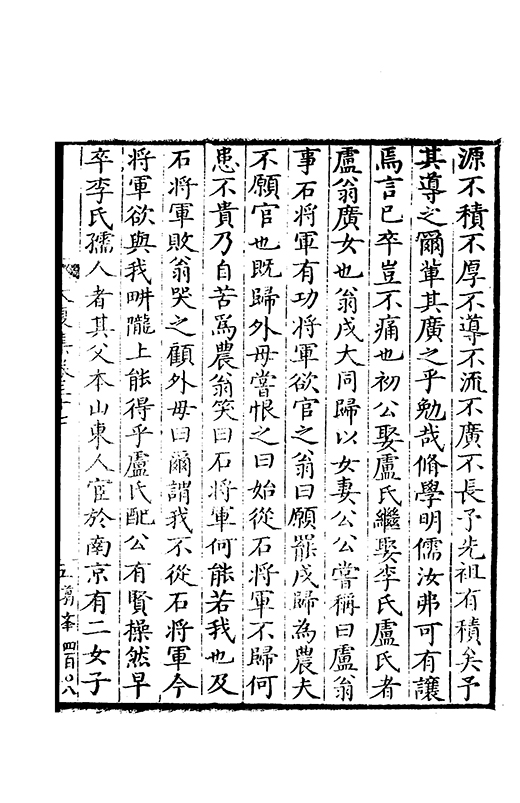 源不積不厚不導不流不廣不長予先祖有積矣予
其導之爾軰其廣之乎勉哉脩學明儒汝弗可有讓
焉言已卒豈不痛也初公娶盧氏繼娶李氏盧氏者
盧翁廣女也翁戍大同歸以女妻公公嘗稱曰盧翁
事石將軍有功將軍欲官之翁曰願罷戍歸為農夫
不願官也既歸外母嘗恨之曰始從石將軍不歸何
患不貴乃自苦爲農翁笑曰石將軍何能若我也及
石將軍敗翁哭之顧外母曰爾謂我不從石將軍今
將軍欲與我畊隴上能得乎盧氏配公有賢操然早
卒李氏孺人者其父本山東人宦於南京有二女子
五 四百〇八